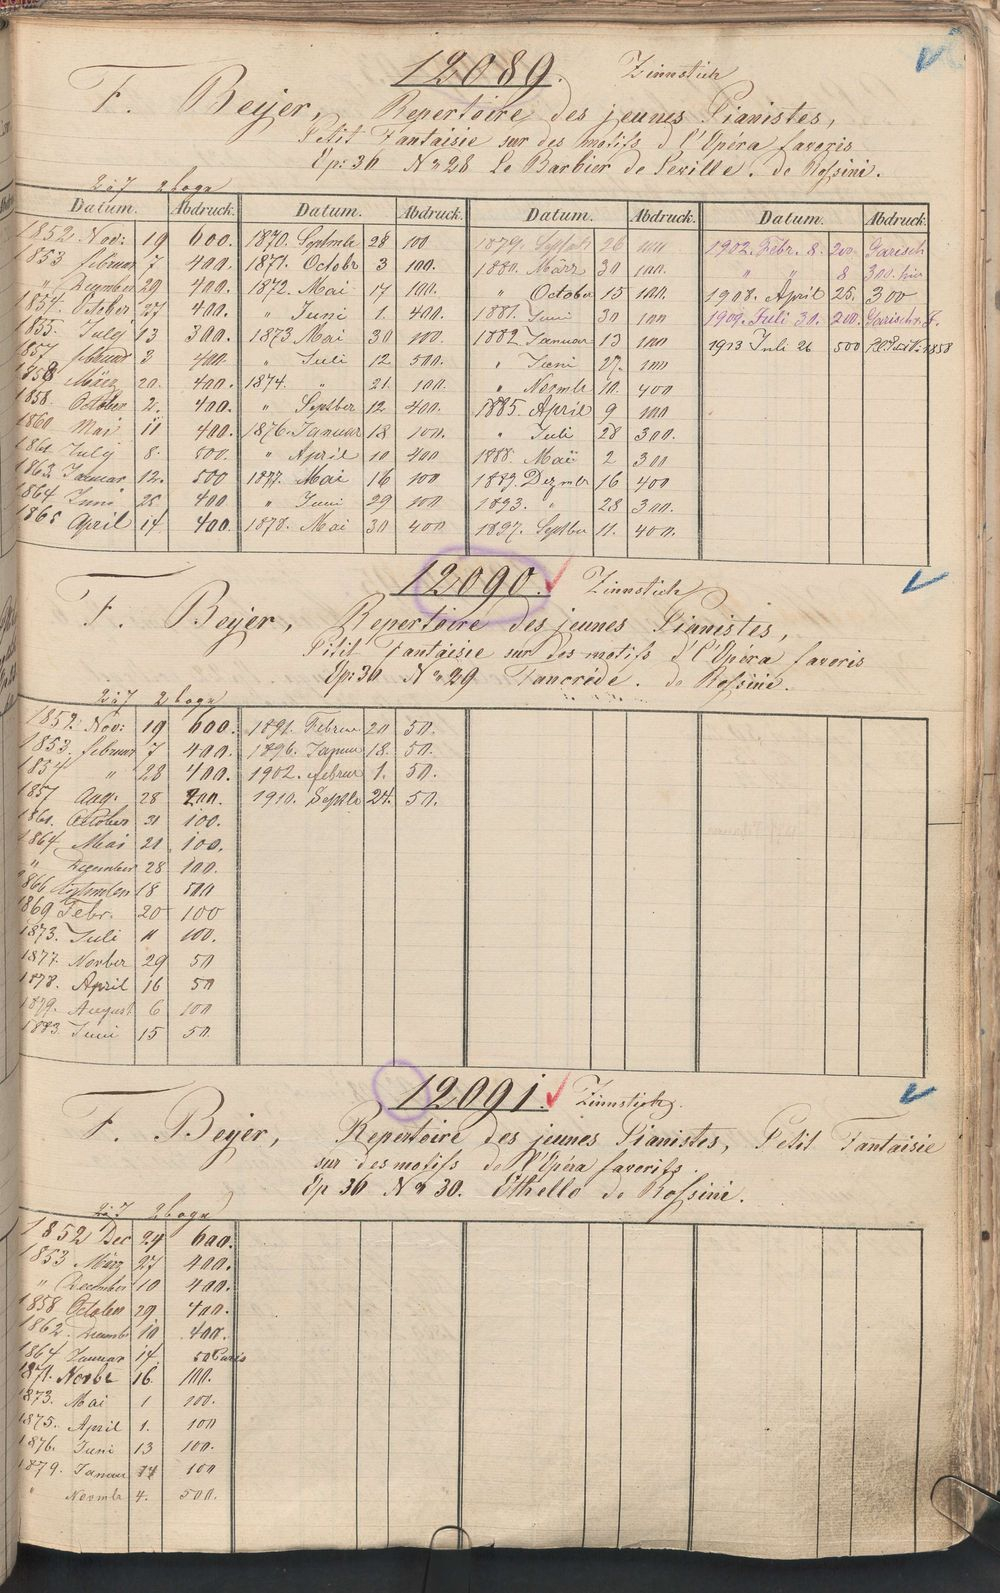 12089. Zinnstich
F. Beyer, Repertoire des jeunes Pianistes,
Petit Fantaisie sur des motifs d l'Opéra favoris
Op: 36 No 28 Le Barbier de Seville. de Rossini.
2 à 7 2 bogn
Datum. Abdruck. Datum. Abdruck. Datum. Abdruck. Datum. Abdruck.
1852. Nov: 19 600. 1870. Septmbr 28 100 1879. 26 100 1902. Febr. 8. 200. Garisch
1853 februar 7 400. 1871. Octobr 3 100. 1880. März 30 100. " " 8 300. hier
" December 29 400. 1872. Mai 17 100. " October 15 100. 1908. April 25. 300
1854. October 27 400. " Juni 1. 400. 1881. Juni 30 100 1909. Juli 30. 200. Garisch
1855. July 13 300. 1873 Mai 30 100. 1882 Januar 13 100 1913 Juli 26 500
1857 februar 3 400. " Juli 12 500. " Juni 27. 100
1858 März 20. 400. 1874. " 21 100. " Novmbr 10. 400
1858. October 2. 400. " Septber 12 400. 1885. April 9 100
1860 Mai 11 400. 1876. Januar 18 100. " Juli 28 300.
1861. July 8. 500. " April 10 400 1888. Mai 2 300
1863. Januar 12. 500 1877. Mai 16 100 1889. Dezmbr 16 400
1864. Juni 25 400 " Juni 29 100 1893. " 28 300.
1865 April 14. 400. 1878. Mai 30 400 1897. Septber 11. 400.
12090. Zinnstich
F. Beyer, Repertoire des jeunes Pianistes,
Petit Fantaisie sur des motifs d'l'Opéra favoris
Op: 36 No 29 Tancrède. de Rossini.
2 à 7 2 bogn
1852. Nov: 19 600. 1891. Februar 20 50.
1853. februar 7 400. 1896. Januar 18. 50.
1854 " 28 400. 1902. februar 1. 50.
1857 Aug. 28 200. 1910. Septbr 24. 50.
1861. October 31 100.
1864. Mai 21 100.
" December 28 100.
1866 September 18
1869 Febr. 20 100
1873. Juli 11 100.
1877. Novber 29 50
1878. April 16 50
1879. August 6 100
1883. Juni 15 50.
12091. Zinnstich.
F. Beyer, Repertoire des jeunes Pianistes, Petit Fantaisie
sur des motifs de l'Opéra favorits.
Op 36 No 30. Othello de Rossini.
2 à 7 2 bogn
1852 Dec 24 600.
1853 März 27 400.
" December 10 400.
1858 October 29 400.
1862. Decembr 10 400.
1864 Januar 14. 50 Paris
1871. Novbr 16 100.
1873. Mai 1 100.
1875. April 1. 100
1876. Juni 13 100.
1879. Januar 100
" Novmbr 4. 500.